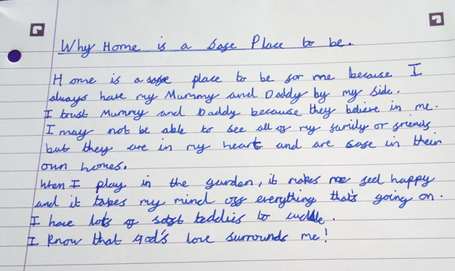 Why Home is a safe Place to be.
Home is a safe place to be for me because I
always have my Mummy and Daddy by my side.
I trust Mummy and Daddy because they believe in me.
I may not be able to see all of my family or friends
but they are in my heart and are safe in their
own homes.
When I play in the garden, it makes me feel happy
and it takes my mind off everything that's going on.
I have lots of soft teddies to cuddle.
I know that God's love surrounds me!